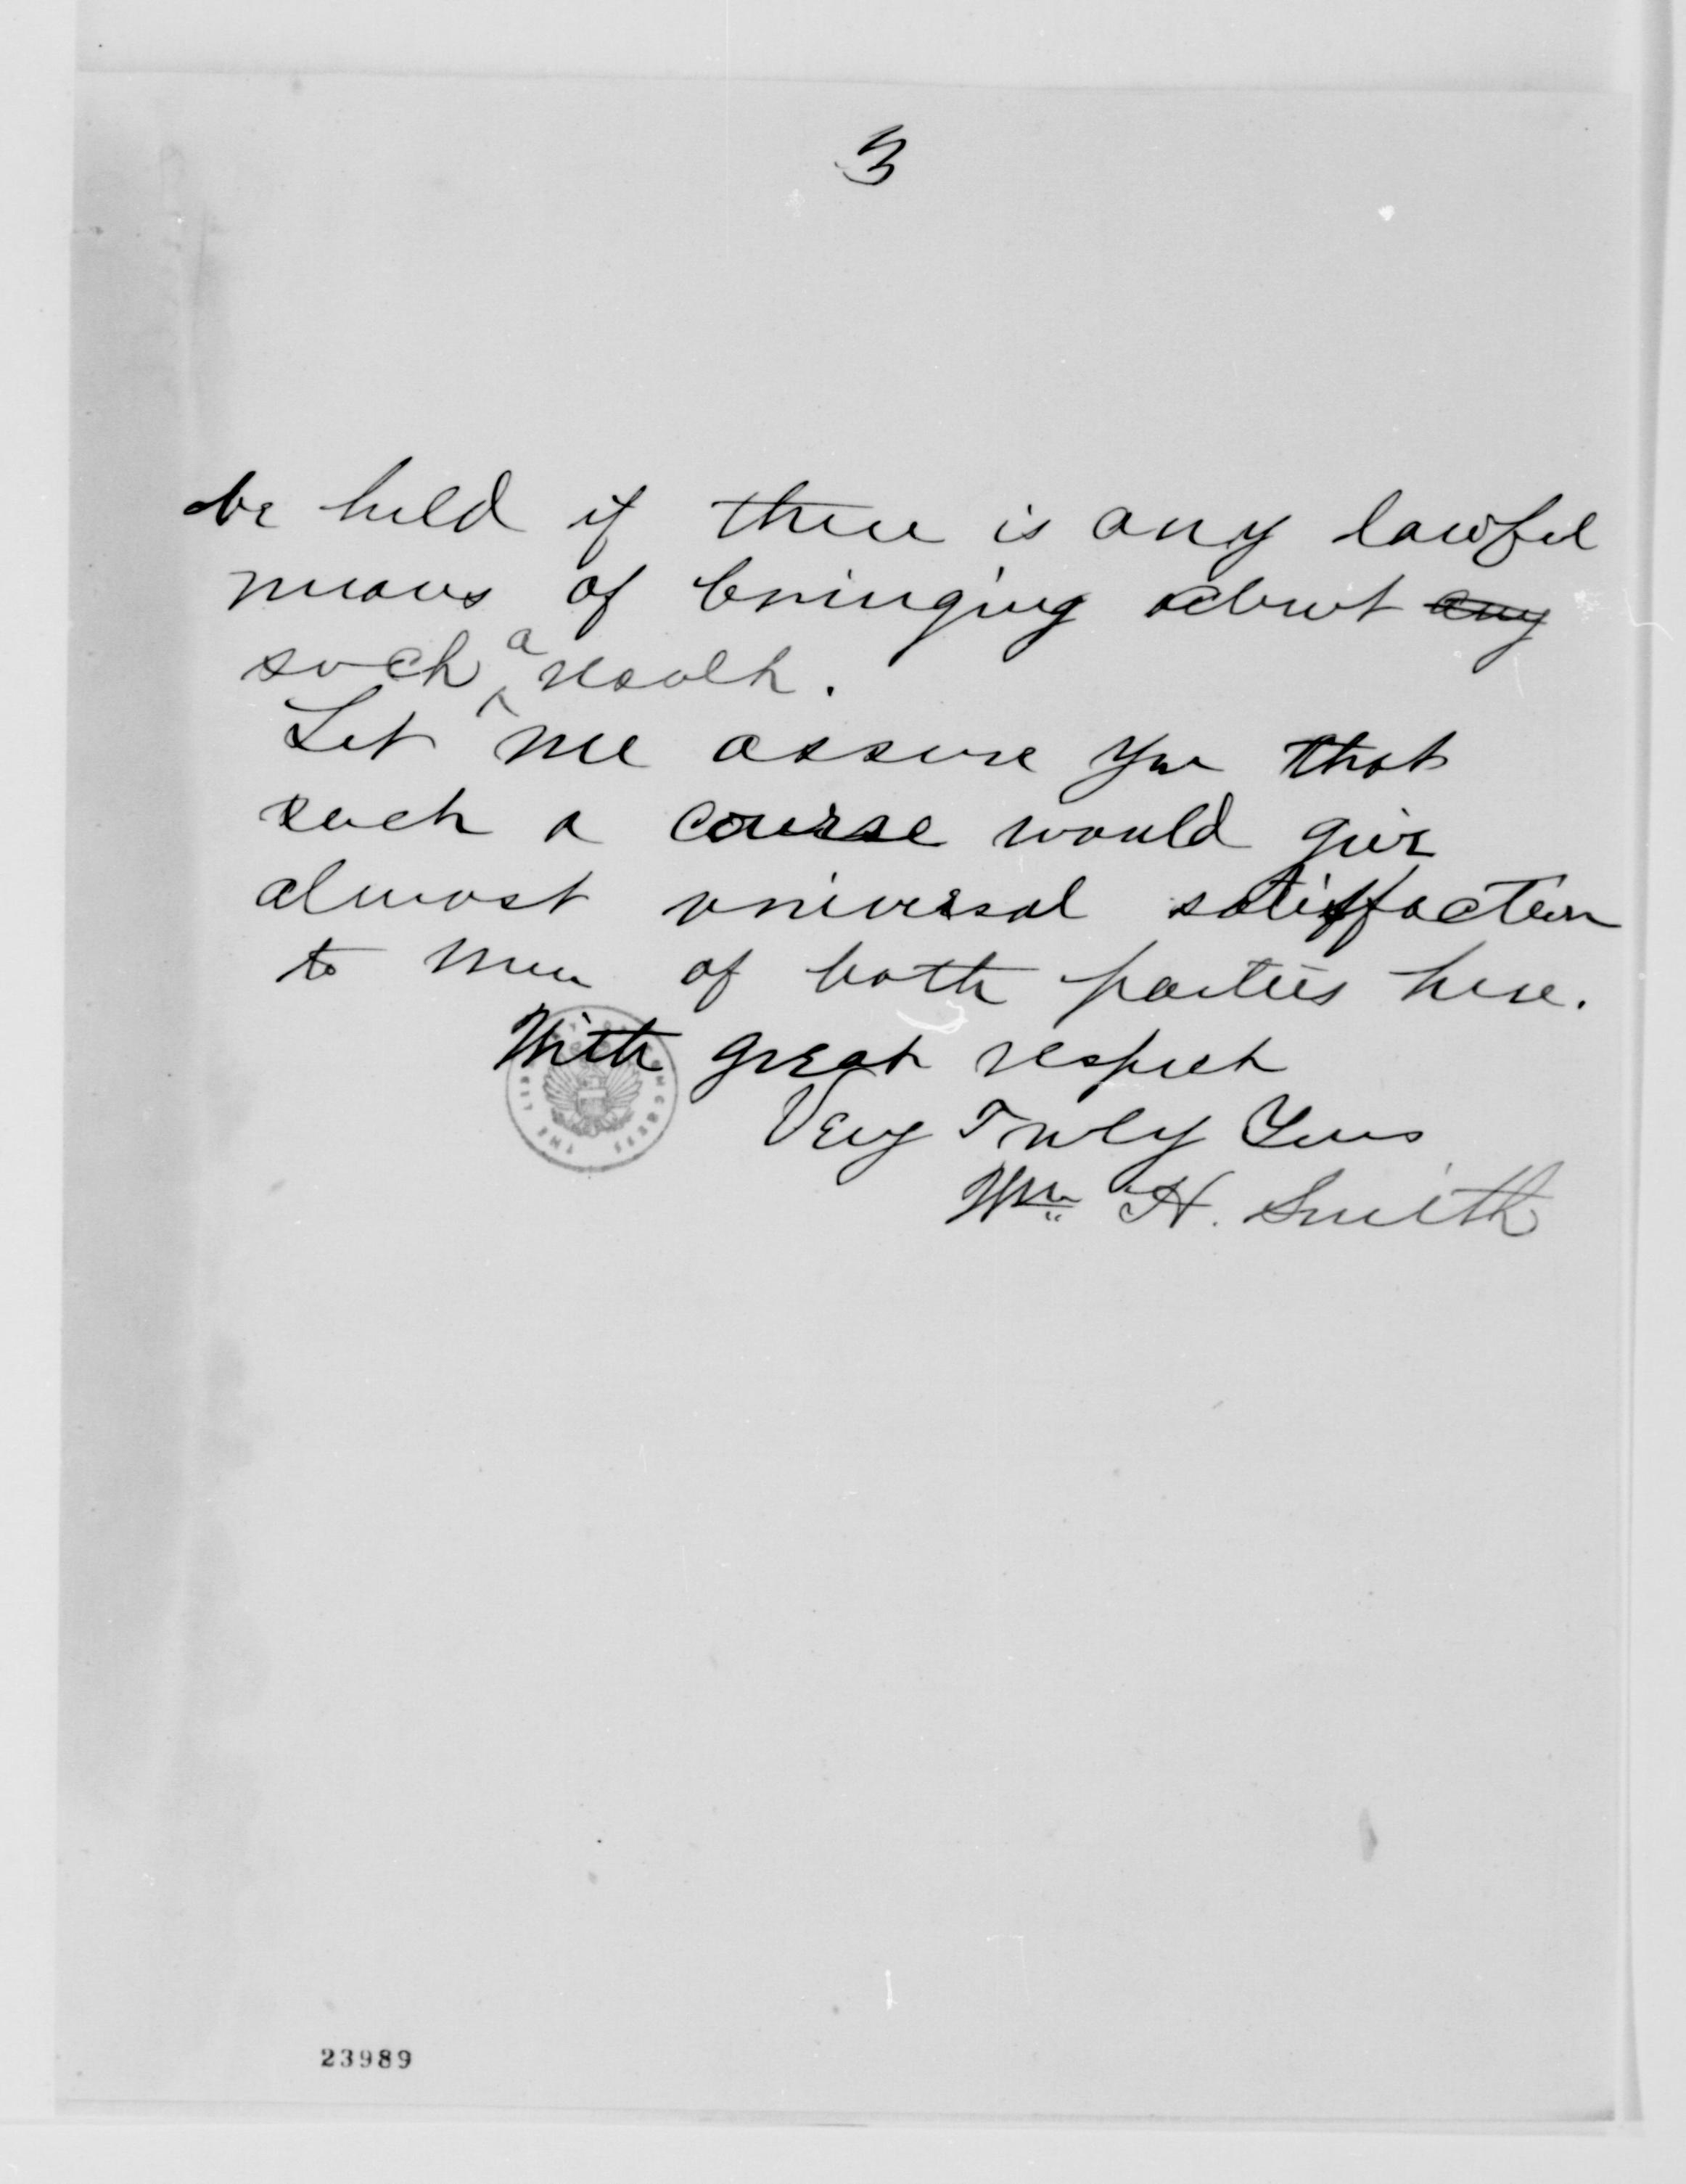 3
be held if there is any lawful
means of bringing about any
such a result.
Let me assure you that
such a course would give
almost universal satisfaction
to men of both parties here.
With great respect
Very Truly Yours
Wm H. Smith
THE LIBRARY OF CONGRESS
23989